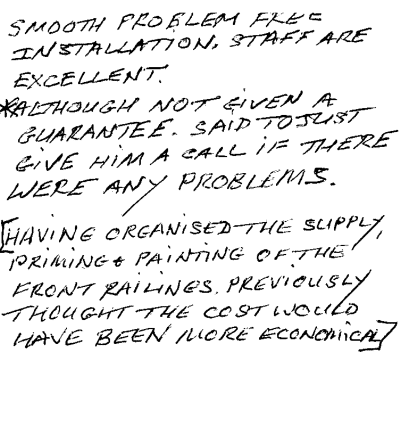 SMOOTH PROBLEM FREE
INSTALLATION. STAFF ARE
EXCELLENT.
*ALTHOUGH NOT GIVEN A
GUARANTEE. SAID TO JUST
GIVE HIM A CALL IF THERE
WERE ANY PROBLEMS.
[HAVING ORGANISED THE SUPPLY,
PRIMING & PAINTING OF THE
FRONT RAILINGS. PREVIOUSLY
THOUGHT THE COST WOULD
HAVE BEEN MORE ECONOMICAL]